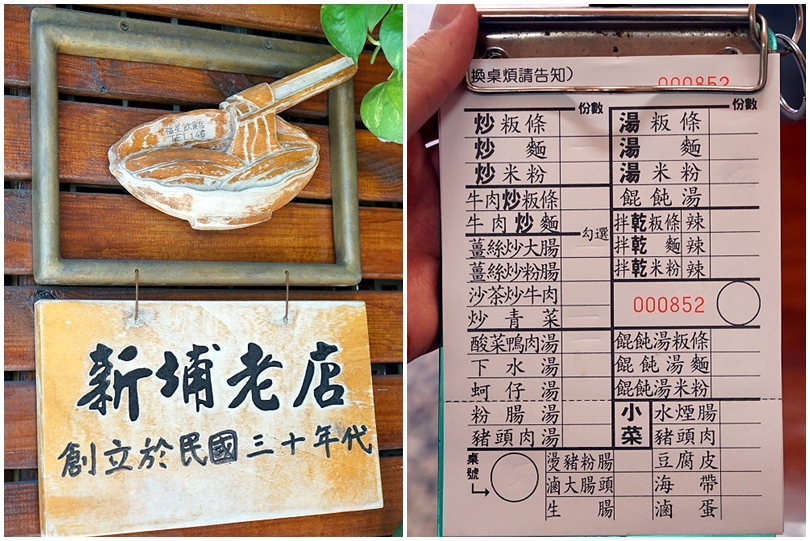 新埔老店
創立於民國三十年代
換桌煩請告知）
000852
份數
炒粄條
炒麵
炒米粉
牛肉炒粄條
牛肉炒麵
勾選
薑絲炒大腸
薑絲炒粉腸
沙茶炒牛肉
炒青菜
酸菜鴨肉湯
下水湯
蚵仔湯
粉腸湯
豬頭肉湯
份數
湯粄條
湯麵
湯米粉
餛飩湯
拌乾粄條辣
拌乾麵辣
拌乾米粉辣
000852
餛飩湯粄條
餛飩湯麵
餛飩湯米粉
小菜
水煙腸
豬頭肉
桌號
燙豬粉腸
豆腐皮
滷大腸頭
海帶
生腸
滷蛋